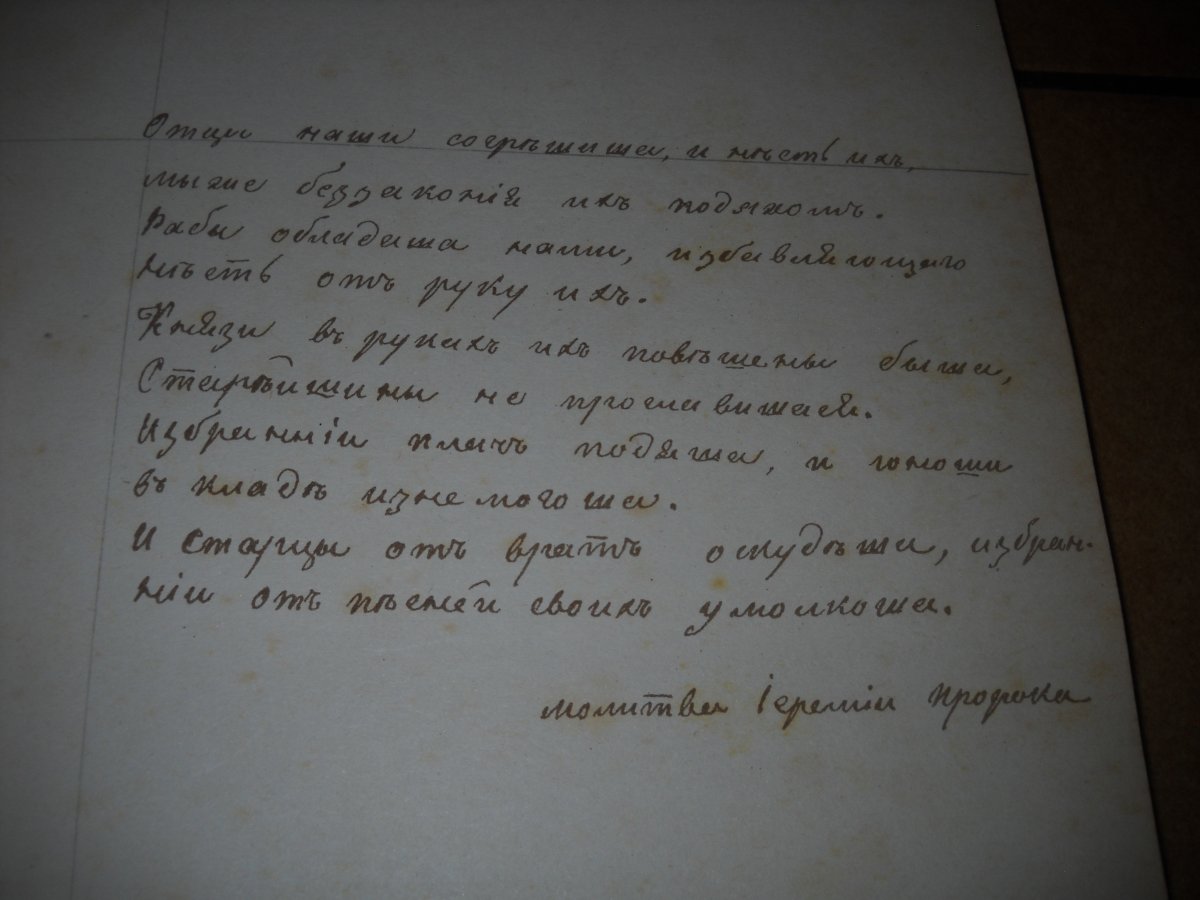 Отцы наши согрѣшиша, и нѣсть ихъ,
мы же беззаконія ихъ подъяхомъ.
Рабы обладаша нами, избавляющаго
нѣсть отъ руку ихъ.
Князи въ рукахъ ихъ повѣшены быша,
Старѣйшины не прославишася.
Избранніи плачь подъяша, и юноши
въ кладѣ изнемогоша.
И старцы отъ вратъ оскудѣша, избран-
ніи отъ пѣсней своихъ умолкоша.
Молитва Іереміи Пророка